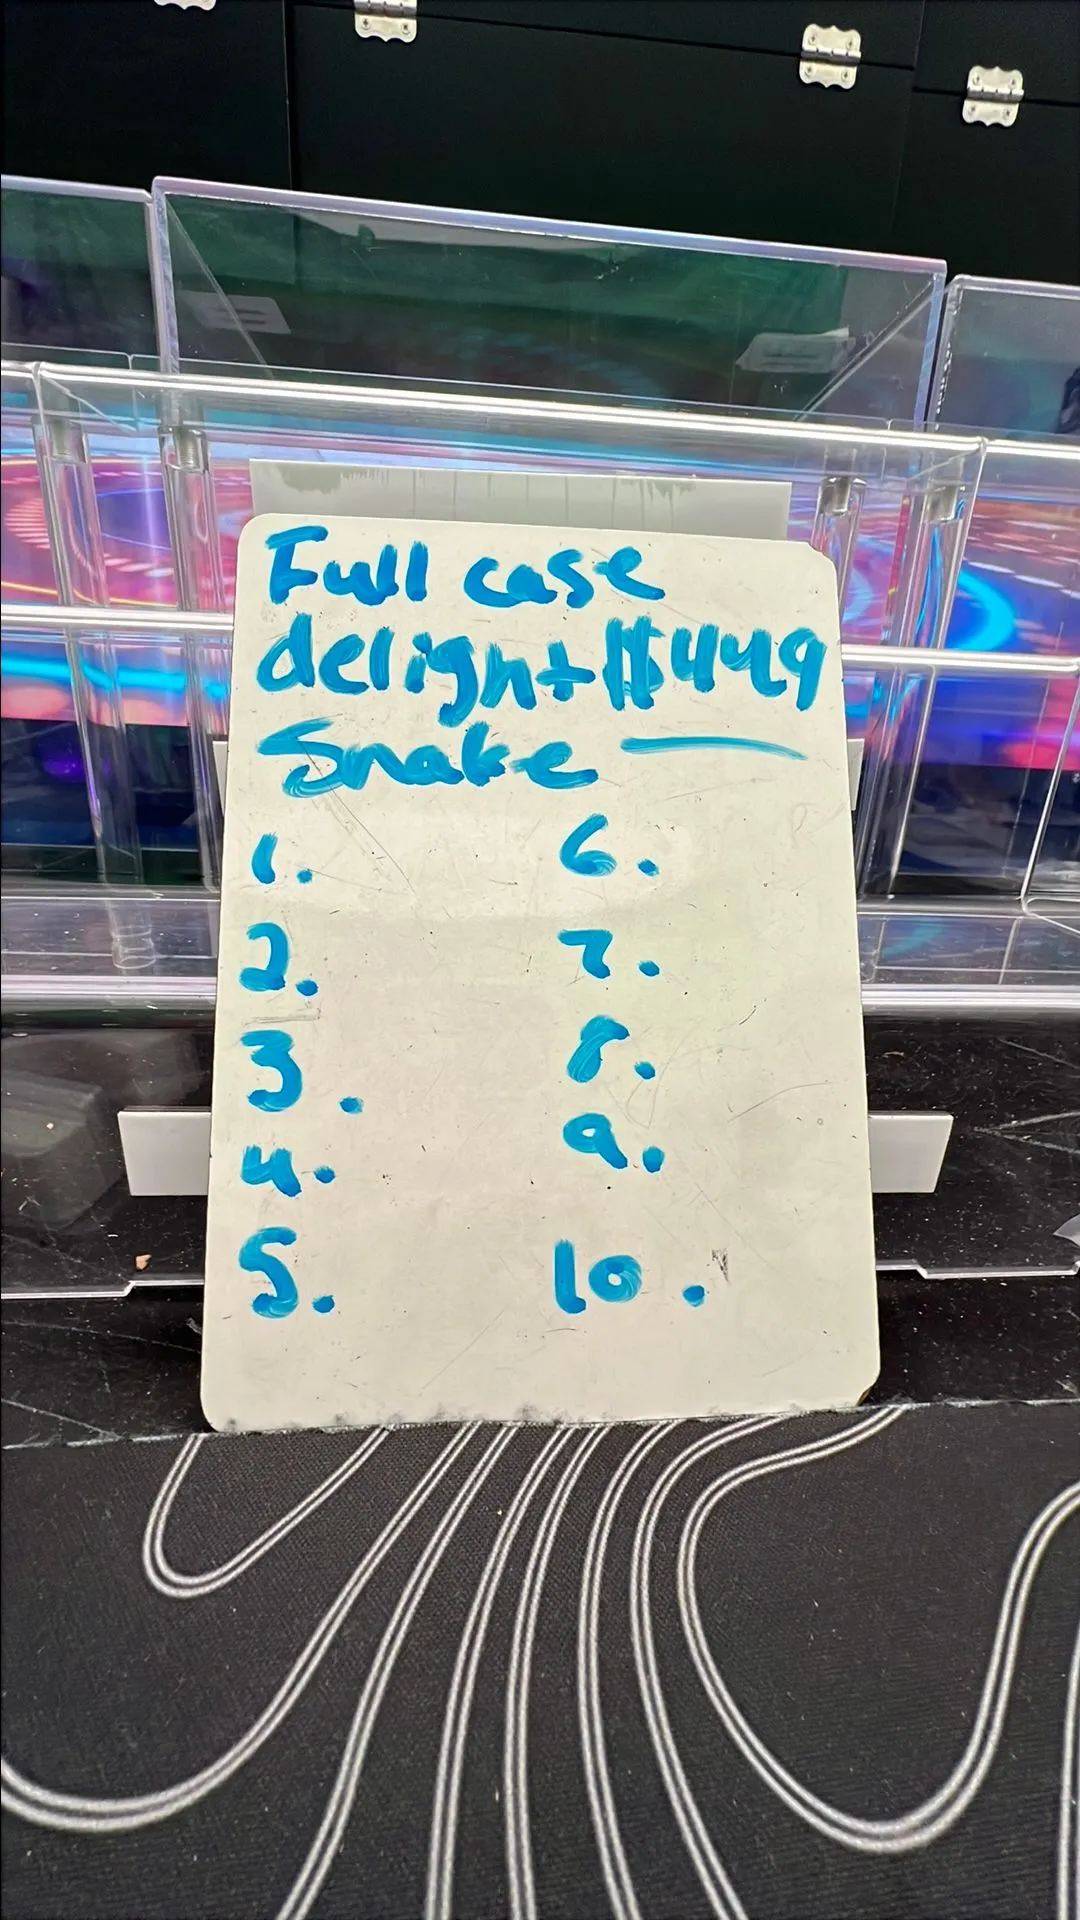 Full case
delight $449
Snake
1. 6.
2. 7.
3. 8.
4. 9.
5. 10.